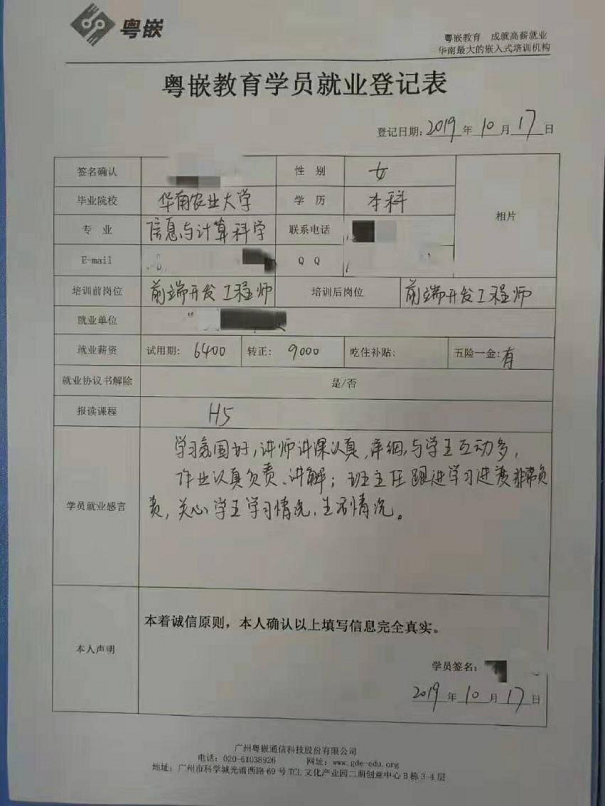 粤嵌
粤嵌教育 成就高薪就业
华南最大的嵌入式培训机构
粤嵌教育学员就业登记表
登记日期:2019年10月17日
签名确认 性别 女
毕业院校 华南农业大学 学历 本科 相片
专业 信息与计算科学 联系电话
E-mail Q Q
培训前岗位 前端开发工程师 培训后岗位 前端开发工程师
就业单位
就业薪资 试用期: 6400 转正: 9000 吃住补贴: 五险一金: 有
就业协议书解除 是/否
报读课程 H5
学习氛围好,讲师讲课认真,详细,与学生互动多,
作业认真负责、讲解;班主任跟进学习进度非常负
学员就业感言 责,关心学生学习情况,生活情况。
本着诚信原则,本人确认以上填写信息完全真实。
本人声明
学员签名:
2019年10月17日
广州粤嵌通信科技股份有限公司
电话:020-61038926 网址:www.gde-edu.org
地址:广州市科学城光谱西路69号TCL文化产业园二期创意中心B栋3-4层